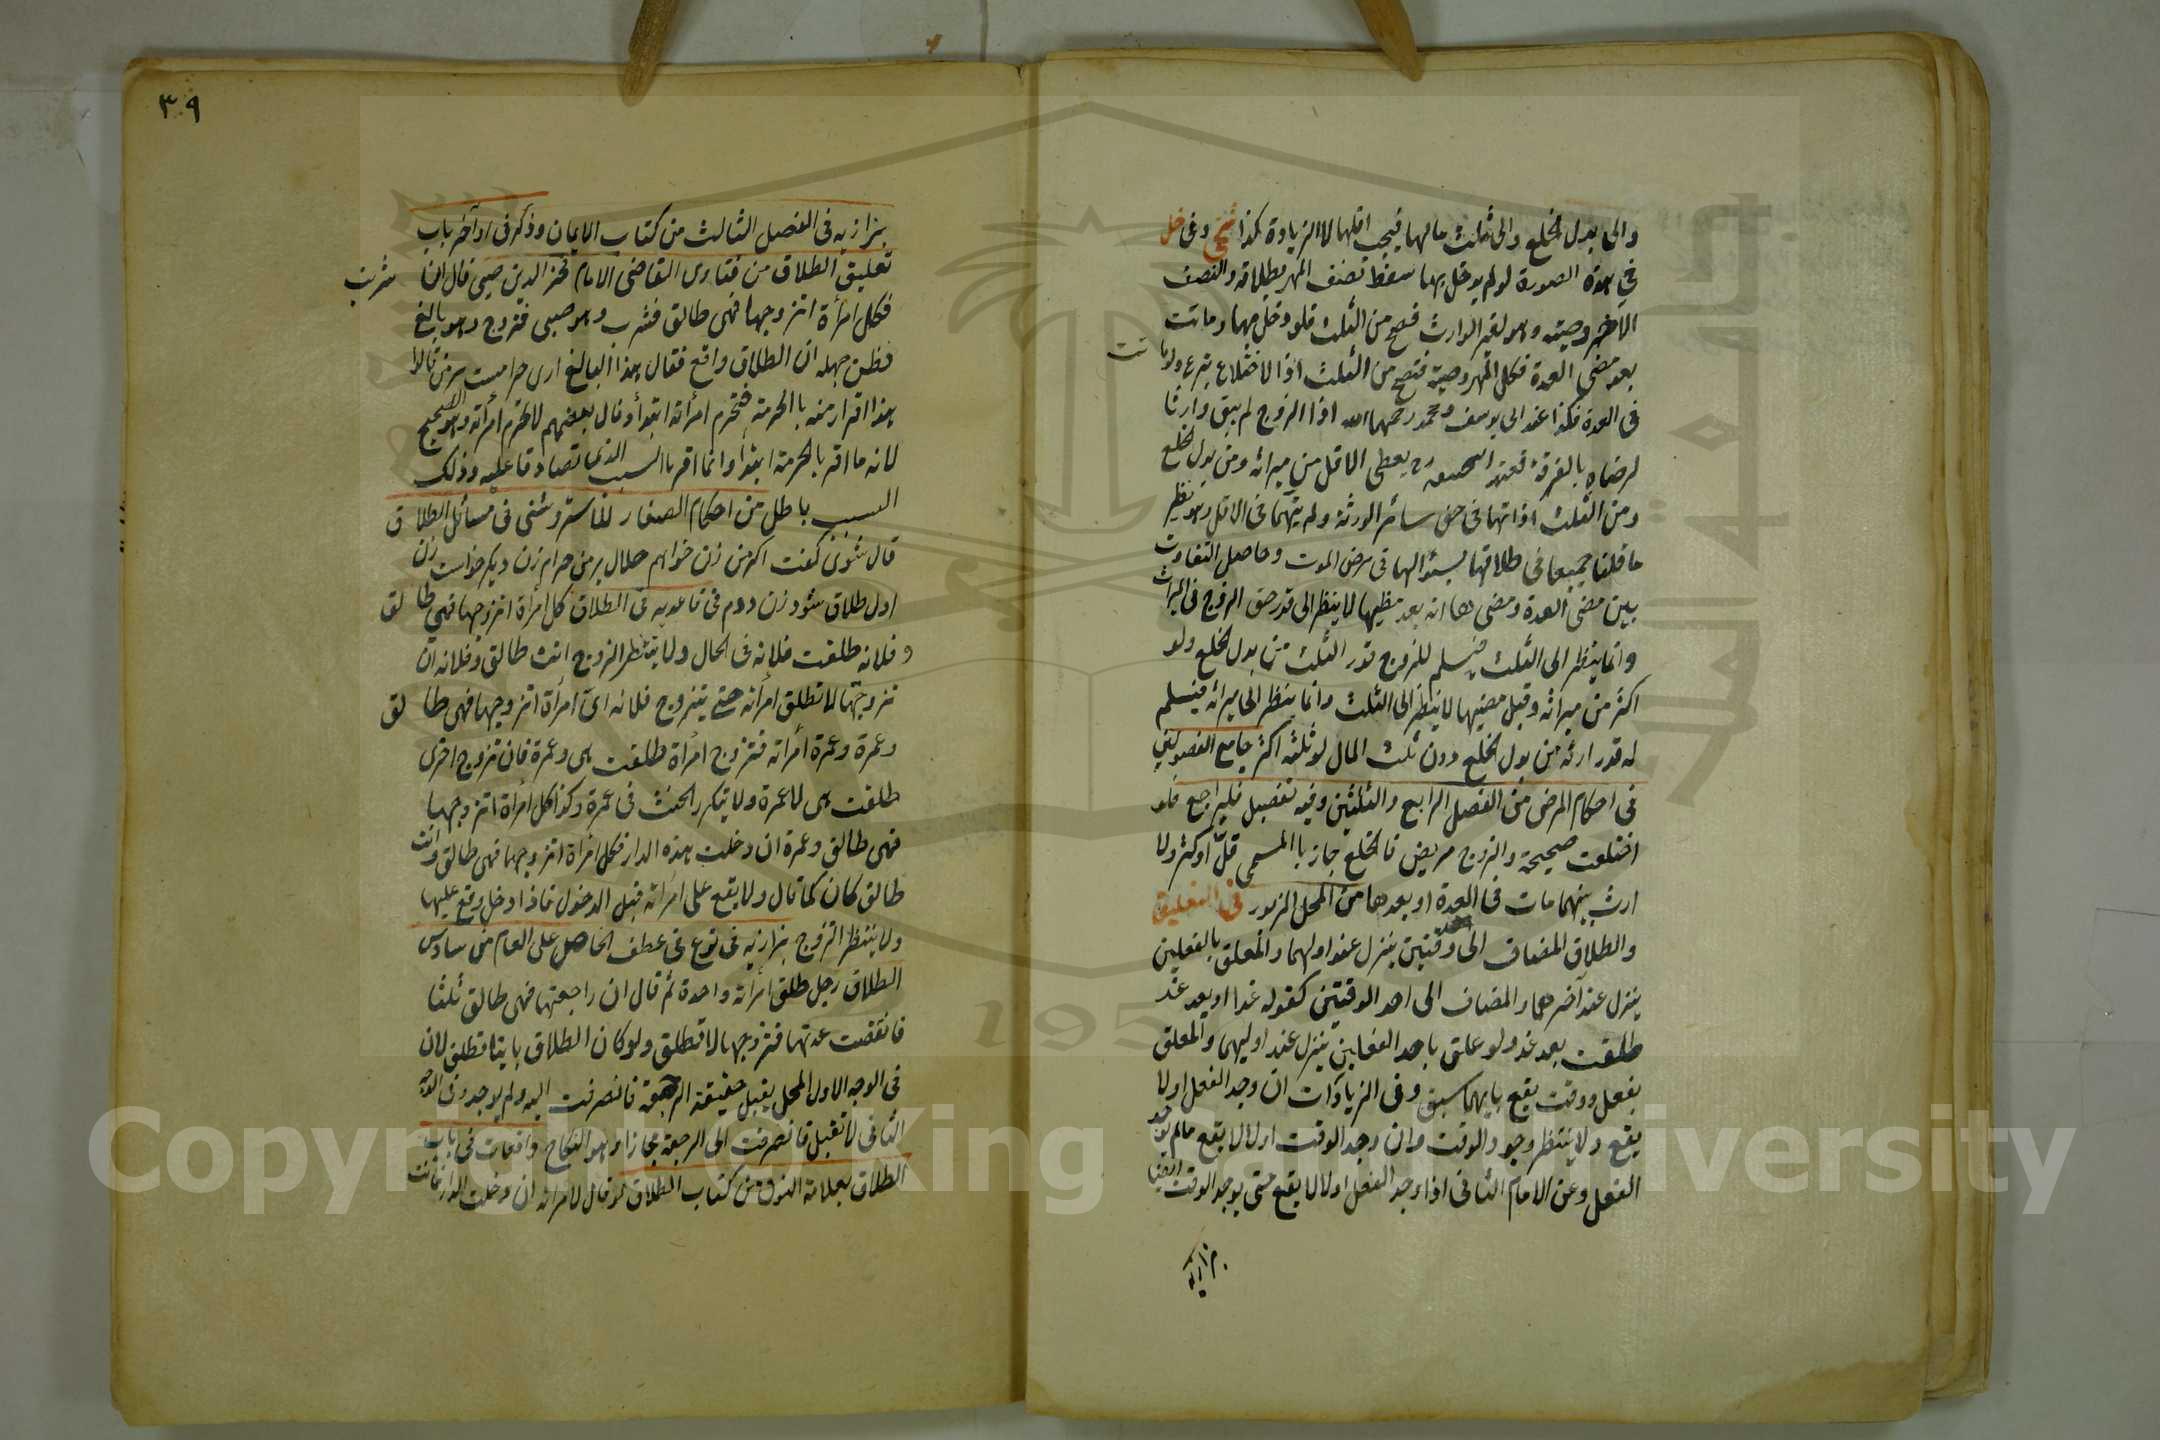 والى بدل الخلع والى ثلث مالها فيجب اقلها لا الزيادة كذا فتح وفى خل
فى هذه الصورة لو لم يدخل بها سقط نصف المهر بطلاقه والنصف
الآخر وصية وهو لغير الوارث فصح من الثلث فلو دخل بها وماتت
بعد مضى العدة فكل المهر وصية فتصح من الثلث اذا الاختلاع تبرع ولو ماتت
فى العدة فكذا عند ابى يوسف ومحمد رحمهما الله اذا الزوج لم يبق وارثا
لرضاه بالفرقة فعند ابى حنيفة رح يعطى الاقل من ميراثه ومن بدل الخلع
ومن الثلث اذا اتهما فى حق سائر الورثة ولم يتهما فى الاقل وهو نظير
ما قلنا جميعا فى طلاقها بسئوالها فى مرض الموت وحاصل التفاوت
بين مضى العدة ومضى ها انه بعد مضيها لا ينظر الى قدر حق الزوج فى الميراث
وانما ينظر الى الثلث فيسلم للزوج قدر الثلث من بدل الخلع ولو
اكثر من ميراثه وقبل مضيها لا ينظر الى الثلث وانما ينظر الى ميراثه فيسلم
له قدر ارثه من بدل الخلع دون ثلث المال لو ثلثه اكثر جامع الفصولين
فى احكام المرضى من الفصل الرابع والثلثين وفيه تفصيل فليراجع ولو
اختلعت صحيحة والزوج مريض فالخلع جاز بالمسمى قل او كثر ولا
ارث بينهما مات فى العدة او بعدها من المحل المزبور فى التعليق
والطلاق المضاف الى وقتين ينزل عند اولهما والمعلق بالفعلين
ينزل عند آخرهما والمضاف الى احد الوقتين كقوله غدا او بعد غد
طلقت بعد غد ولو علق باحد الفعلين ينزل عند اوليهما والمعلق
بفعل ووقت يقع بايهما سبق وفى الزيادات ان وجد الفعل اولا
يقع ولا ينتظر وجود الوقت وان وجد الوقت اولا لا يقع مالم يوجد
الفعل وعن الامام الثانى اذا وجد الفعل اولا لا يقع حتى يوجد الوقت ايضا
بزازيه
٣٩
بزازيه فى الفصل الثالث من كتاب الايمان وذكر فى اواخر باب
تعليق الطلاق من فتاوى القاضى الامام فخر الدين صبى قال ان شربت
فكل امرأة اتزوجها فهى طالق فشرب وهو صبى فتزوج وهو بالغ
فظن جهله ان الطلاق واقع فقال هذا البالغ ارى حرامست بر من قالوا
هذا اقرار منه بالحرمة فتحرم امرأته ابتداء وقال بعضهم لا تحرم امرأته وهو الصحيح
لانه ما اقر بالحرمة ابتداء وانما اقر بالسبب الذى تصادقا عليه وذلك
السبب باطل من احكام الصغار للاستروشنى فى مسائل الطلاق
قال شوى كفت اكر من زن خواهم حلال بر من حرام زن ديكر خواست زن
اول طلاق شود زن دوم فى قاعديه فى الطلاق كل امرأة اتزوجها فهى طالق
وفلانه طلقت فلانه فى الحال ولا ينتظر التزوج انت طالق وفلانه ان
تزوجتها لا تطلق امرأته حتى يتزوج فلانه اى امرأة اتزوجها فهى طالق
وعمرة وعمرة امرأته فتزوج امرأة طلقت هى وعمرة فان تزوج اخرى
طلقت هى لا عمرة ولا يتكرر الحنث فى عمرة وكذا كل امرأة اتزوجها
فهى طالق وعمرة ان دخلت هذه الدار فكل امرأة اتزوجها فهى طالق وانت
طالق كان كما قال ولا يقع على امرأته قبل الدخول فاذا دخل وقع عليها
ولا ينتظر التزوج بزازيه فى نوع فى عطف الخاص على العام من سادس
الطلاق رجل طلق امرأته واحدة ثم قال ان راجعتها فهى طالق ثلثا
فانقضت عدتها فتزوجها لا تطلق ولو كان الطلاق باينا تطلق لان
فى الوجه الاول المحل يقبل حقيقة الرجعة فانصرفت اليه ولم يوجد وفى الوجه
الثانى لا تقبل فانصرفت الى الرجعة مجازا وهو النكاح واقعات فى باب
الطلاق بعلامة النون من كتاب الطلاق لو قال لامرأته ان دخلت الدار فانت
Copyright © King Saud University